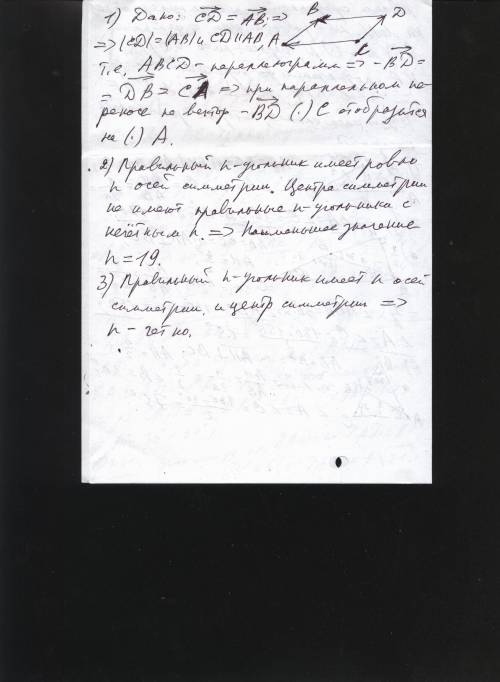 1) Дано: CD = AB; =>
B
D
=> |CD| = |AB| и CD || AB,
A
C
т.е. ABCD - параллелограмм => -BD =
= DB = CA => при параллельном пе-
реносе на вектор -BD (·) C отобразится
на (·) A.
2) Правильный n-угольник имеет ровно
n осей симметрии. Центра симметрии
не имеют правильные n-угольники с
нечётным n. => Наименьшее значение
n = 19.
3) Правильный n-угольник имеет n осей
симметрии и центр симметрии =>
n - четно.